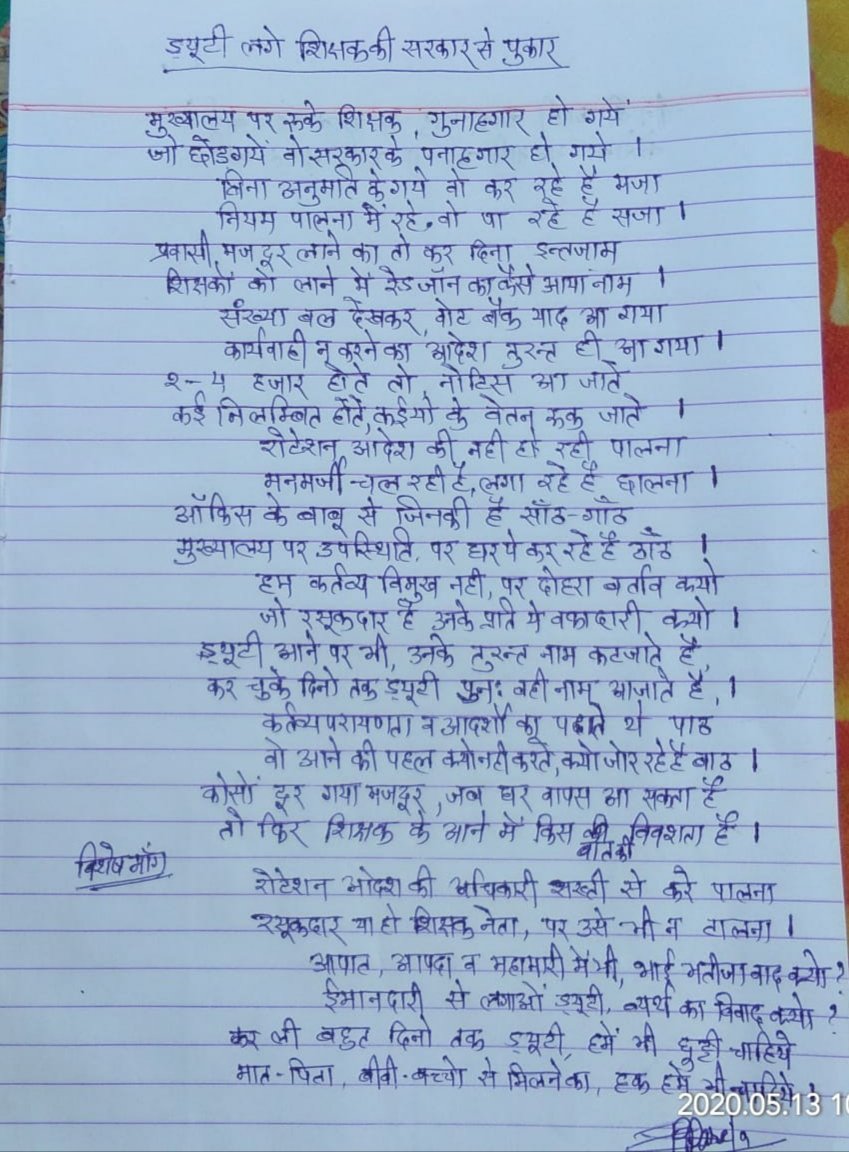 ड्यूटी लगे शिक्षक की सरकार से पुकार
मुख्यालय पर रूके शिक्षक, गुनाहगार हो गये
जो छोडगये वो सरकार के पनाहगार हो गये ।
बिना अनुमति के गये वो कर रहे है मजा
नियम पालना में रहे, वो पा रहे है सजा ।
प्रवासी मजदूर लाने का तो कर दिना इन्तजाम
शिक्षकों को लाने में रेड जॉन का कैसे आया नाम ।
संख्या बल देखकर, वोट बैंक याद आ गया
कार्यवाही न करने का आदेश तुरन्त ही आ गया ।
२-४ हजार होते तो, नोटिस आ जाते
कई निलम्बित होते, कईयो के वेतन रूक जाते ।
रोटेशन आदेश की नही हो रही पालना
मनमर्जी चल रही है, लगा रहे है छालना ।
ऑफिस के बाबू से जिनकी है साँठ-गाँठ
मुख्यालय पर उपस्थिति, पर घर पे कर रहे है ठाँठ ।
हम कर्तव्य विमुख नही, पर दोहरा बर्ताव क्यो
जो रसूकदार है उनके प्रति ये वफादारी क्यो ।
ड्यूटी आने पर भी, उनके तुरन्त नाम कटजाते है,
कर चुके दिनो तक ड्यूटी पुनः वही नाम आजाते है, ।
कर्तव्यपरायणता व आदर्शों का पढाते थे पाठ
वो आने की पहल क्यो नही करते, क्यो जोर रहे है बाठ ।
कोसों दूर गया मजदूर, जब घर वापस आ सकता है
तो फिर शिक्षक के आने में किस बात की विवशता है ।
विशेष माँग
रोटेशन आदेश की अधिकारी सख्ती से करे पालना
रसूकदार या हो शिक्षक नेता, पर उसे भी न टालना ।
आपात, आपदा व महामारी में भी, भाई भतीजा वाद क्यो ?
ईमानदारी से लगाओं ड्यूटी, व्यर्थ का विवाद क्यो ?
कर ली बहुत दिनो तक ड्यूटी, हमें भी छुट्टी चाहिये
मात-पिता, बीवी-बच्चो से मिलने का, हक हमें भी चाहिये ।
2020.05.13 1